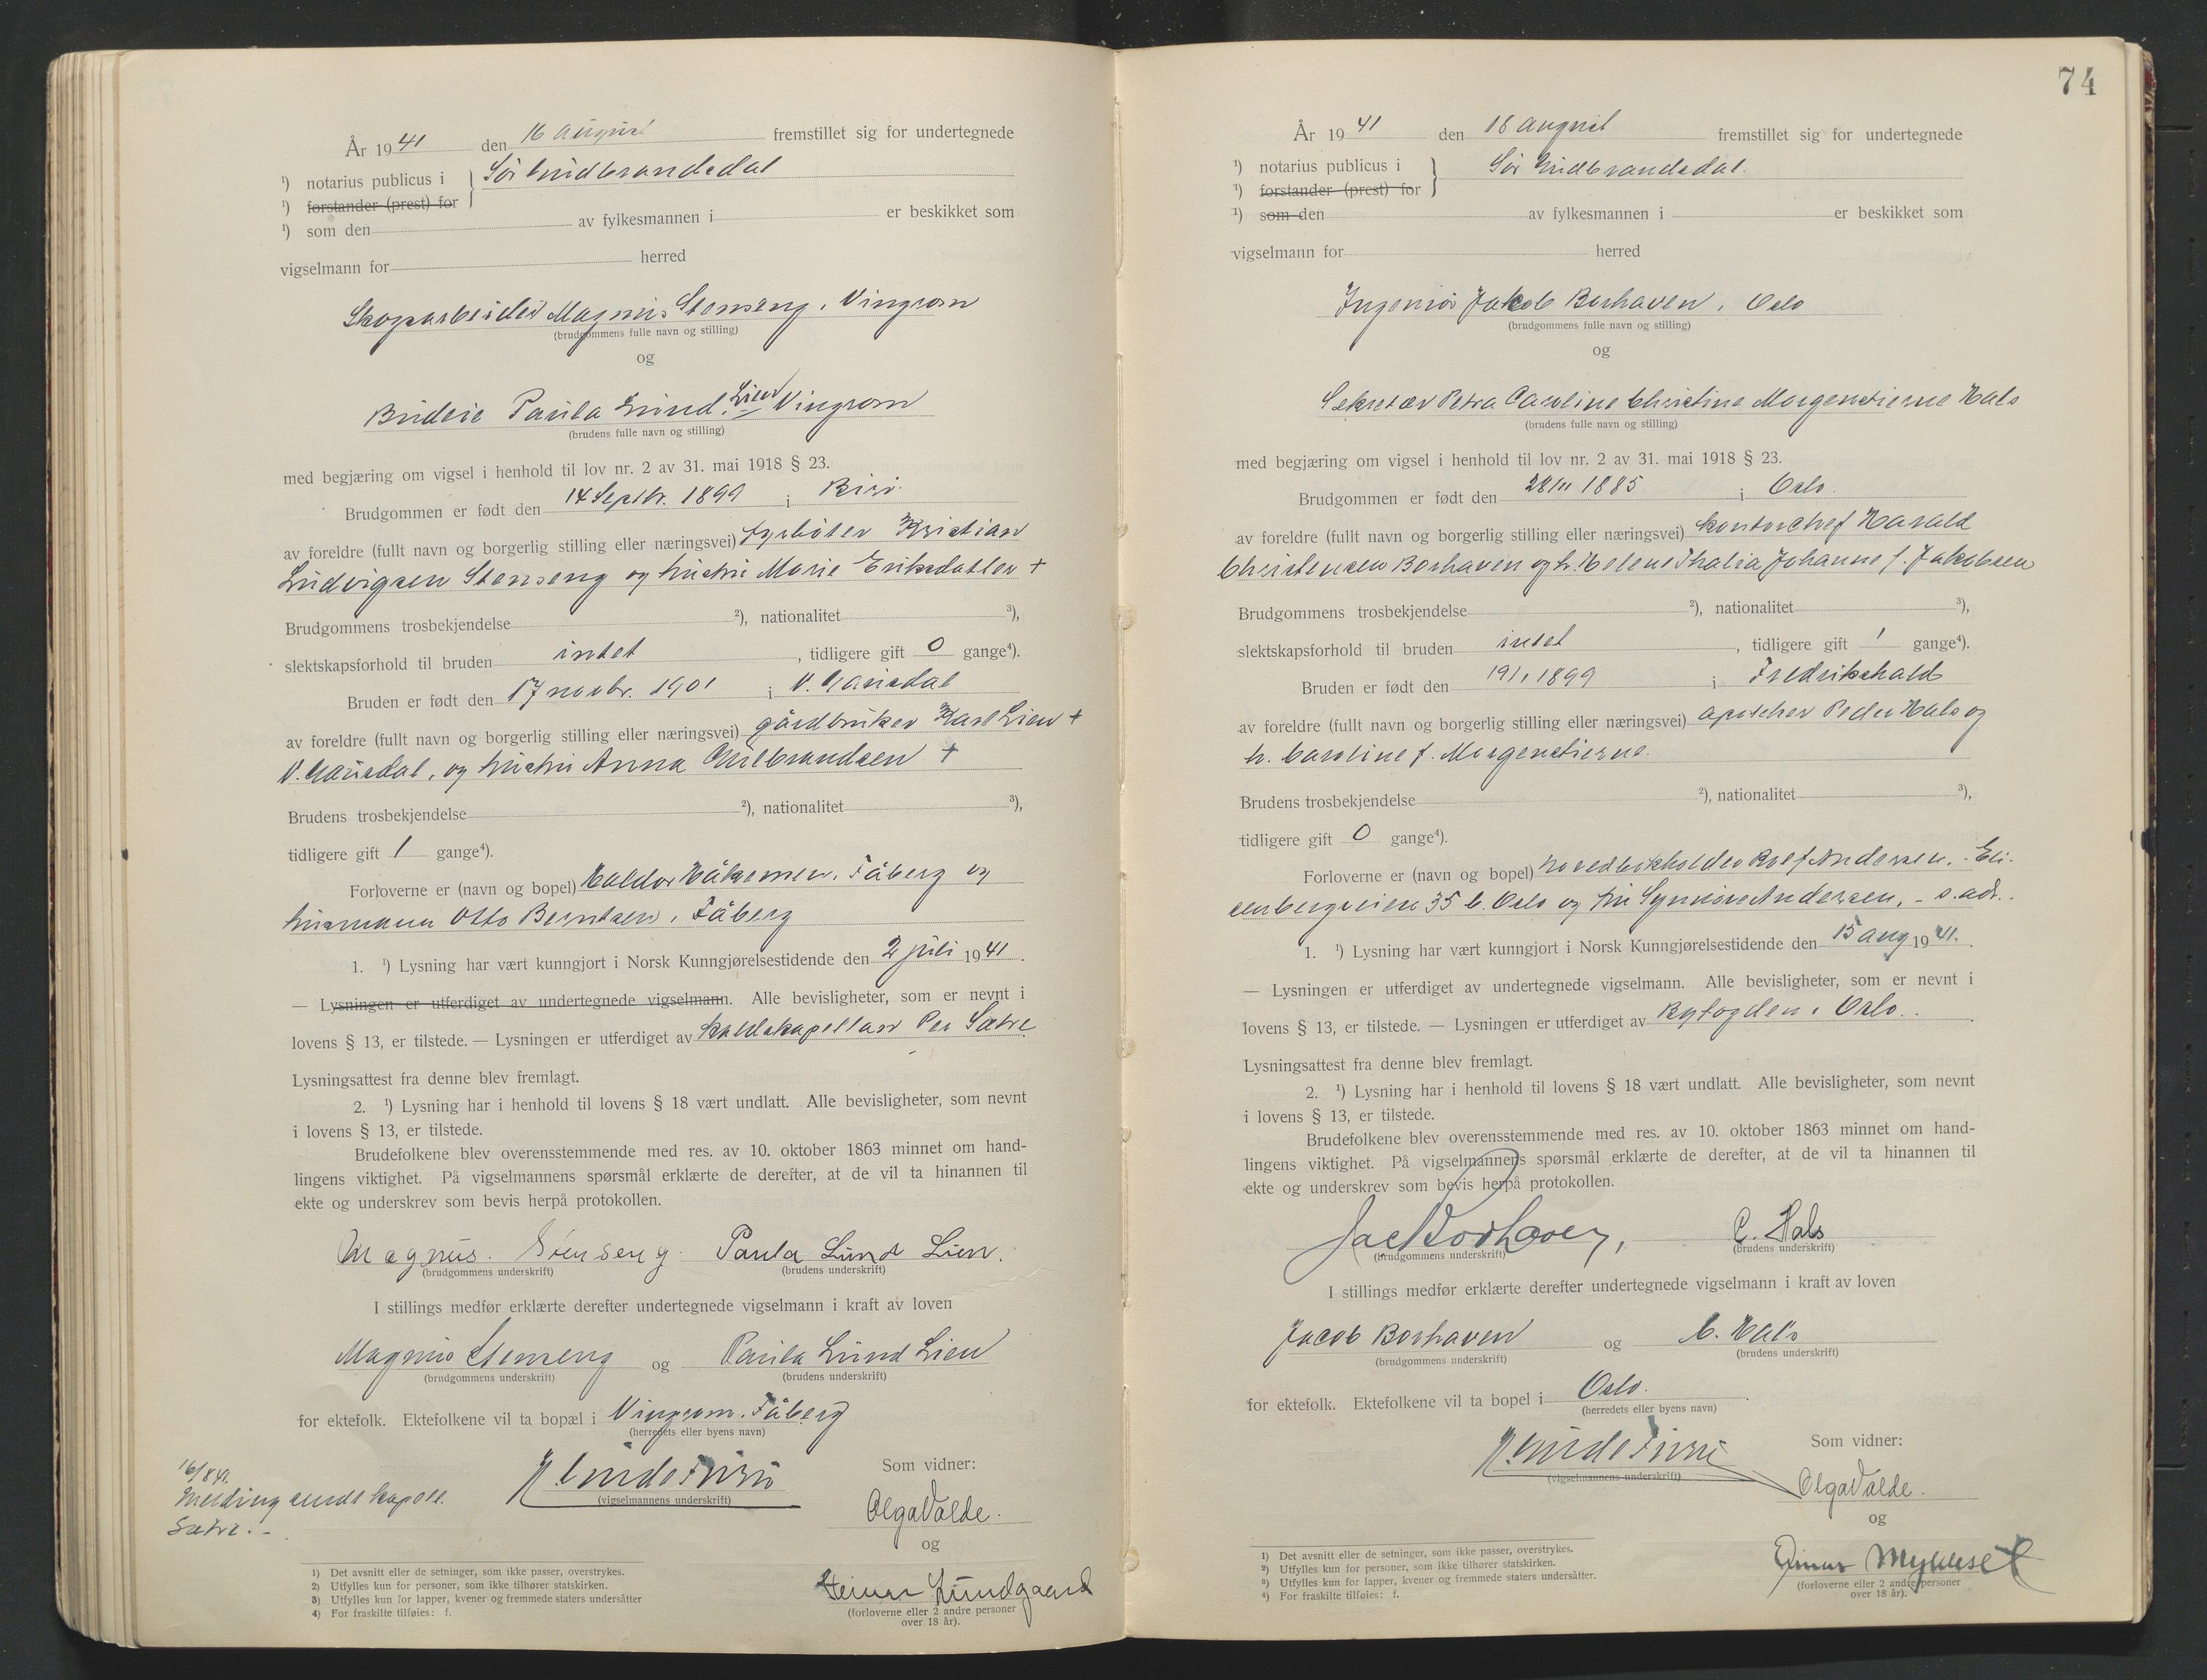 År 1941 den 16 august fremstillet sig for undertegnede
¹) notarius publicus i } Sør Gudbrandsdal
¹) forstander (prest) for
¹) som den av fylkesmannen i er beskikket som
vigselmann for herred
Skogsarbeider Magnus Stenseng, Vingrom
(brudgommens fulle navn og stilling)
og
Budeie Paula Lund Lien, Vingrom
(brudens fulle navn og stilling)
med begjæring om vigsel i henhold til lov nr. 2 av 31. mai 1918 § 23.
Brudgommen er født den 14 Septbr. 1899 i Biri.
av foreldre (fullt navn og borgerlig stilling eller næringsvei) fyrbøter Kristian
Ludvigsen Stenseng og hustru Marie Eriksdatter +
Brudgommens trosbekjendelse ²), nationalitet ³),
slektskapsforhold til bruden intet , tidligere gift 0 gange⁴).
Bruden er født den 17 novbr. 1901 i V. Gausdal
av foreldre (fullt navn og borgerlig stilling eller næringsvei) gårdbruker Karl Lien +
V. Gausdal, og hustru Anna Gulbrandsen +
Brudens trosbekjendelse ²), nationalitet ³),
tidligere gift 1 gange⁴).
Forloverne er (navn og bopel) Haldor Håkensen, Fåberg og
husmann Otto Berntsen, Fåberg
1. ¹) Lysning har vært kunngjort i Norsk Kunngjørelsestidende den 2 juli 1941.
— Lysningen er utferdiget av undertegnede vigselmann. Alle bevisligheter, som er nevnt i
lovens § 13, er tilstede. — Lysningen er utferdiget av kaldskapellan Per Sætre
Lysningsattest fra denne blev fremlagt.
2. ¹) Lysning har i henhold til lovens § 18 vært undlatt. Alle bevisligheter, som nevnt
i lovens § 13, er tilstede.
Brudefolkene blev overensstemmende med res. av 10. oktober 1863 minnet om hand-
lingens viktighet. På vigselmannens spørsmål erklærte de derefter, at de vil ta hinannen til
ekte og underskrev som bevis herpå protokollen.
Magnus. Stenseng. Paula Lund Lien.
(brudgommens underskrift) (brudens underskrift)
I stillings medfør erklærte derefter undertegnede vigselmann i kraft av loven
Magnus Stenseng og Paula Lund Lien
(brudgommens underskrift) (brudens underskrift)
for ektefolk. Ektefolkene vil ta bopæl i Vingrom. Fåberg
(herredets eller byens navn)
16/8 41.
Melding sendt kapell.
Sætre. -
(vigselmannens underskrift)
Som vidner:
Olga Valde.
og
Steinar Lundgaard
(forloverne eller 2 andre personer
over 18 år).
1) Det avsnitt eller de setninger, som ikke passer, overstrykes.
2) Utfylles kun for personer, som ikke tilhører statskirken.
3) Utfylles kun for lapper, kvener og fremmede staters undersåtter
4) For fraskilte tilføies: f.
74
År 1941 den 18 august fremstillet sig for undertegnede
¹) notarius publicus i } Sør Gudbrandsdal.
¹) forstander (prest) for
¹) som den av fylkesmannen i er beskikket som
vigselmann for herred
Ingeniør Jakob Borhaven, Oslo
(brudgommens fulle navn og stilling)
og
Sekretær Petra Caroline Christine Morgenstierne Hals
(brudens fulle navn og stilling)
med begjæring om vigsel i henhold til lov nr. 2 av 31. mai 1918 § 23.
Brudgommen er født den 1885 i Oslo.
av foreldre (fullt navn og borgerlig stilling eller næringsvei) kontorchef Harald
Christensen Borhaven og h. Helene Thalia Johanne f. Jakobsen
Brudgommens trosbekjendelse ²), nationalitet ³),
slektskapsforhold til bruden intet , tidligere gift 1 gange⁴).
Bruden er født den 19/1 1899 i Fredrikshald
av foreldre (fullt navn og borgerlig stilling eller næringsvei) apoteker Peder Hals og
h. Caroline f. Morgenstierne.
Brudens trosbekjendelse ²), nationalitet ³),
tidligere gift 0 gange⁴).
Forloverne er (navn og bopel) hovedbokholder Rolf Andersen, - Eli-
senbergveien 35 b. Oslo og fru Synnøve Andersen, - s. adr..
1. ¹) Lysning har vært kunngjort i Norsk Kunngjørelsestidende den 15 aug 1941.
— Lysningen er utferdiget av undertegnede vigselmann. Alle bevisligheter, som er nevnt i
lovens § 13, er tilstede. — Lysningen er utferdiget av Byfogden i Oslo.
Lysningsattest fra denne blev fremlagt.
2. ¹) Lysning har i henhold til lovens § 18 vært undlatt. Alle bevisligheter, som nevnt
i lovens § 13, er tilstede.
Brudefolkene blev overensstemmende med res. av 10. oktober 1863 minnet om hand-
lingens viktighet. På vigselmannens spørsmål erklærte de derefter, at de vil ta hinannen til
ekte og underskrev som bevis herpå protokollen.
Jac Borhaven, C. Hals
(brudgommens underskrift) (brudens underskrift)
I stillings medfør erklærte derefter undertegnede vigselmann i kraft av loven
Jacob Borhaven og C. Hals
(brudgommens underskrift) (brudens underskrift)
for ektefolk. Ektefolkene vil ta bopel i Oslo.
(herredets eller byens navn)
(vigselmannens underskrift)
Som vidner:
Olga Valde.
og
Einar Mykleset
(forloverne eller 2 andre personer
over 18 år).
1) Det avsnitt eller de setninger, som ikke passer, overstrykes.
2) Utfylles kun for personer, som ikke tilhører statskirken.
3) Utfylles kun for lapper, kvener og fremmede staters undersåtter.
4) For fraskilte tilføies: f.